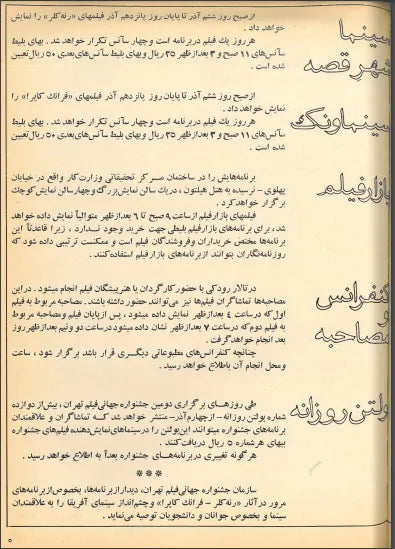 سینما
شهر قصه
از صبح روز ششم آذر تا پایان روز پانزدهم آذر فیلمهای «رنه کلر» را نمایش
خواهد داد.
هر روز یک فیلم در برنامه است و چهار سآنس تکرار خواهد شد. بهای بلیط
سآنس‌های ۱۱ صبح و ۳ بعدازظهر ۳۵ ریال و بهای بلیط سآنس‌های بعدی ۵۰ ریال تعیین
شده است.
سینما ونک
از صبح روز ششم آذر تا پایان روز پانزدهم آذر فیلمهای «فرانک کاپرا» را
نمایش خواهد داد.
هر روز یک فیلم در برنامه است و چهار سآنس تکرار خواهد شد. بهای بلیط
سآنس‌های ۱۱ صبح و ۳ بعدازظهر ۳۵ ریال و بهای بلیط سآنس‌های بعدی ۵۰ ریال تعیین
شده است.
بازار فیلم
برنامه‌هایش را در ساختمان مرکز تحقیقاتی وزارت کار واقع در خیابان
پهلوی - نرسیده به هتل هیلتون، در یک سالن نمایش بزرگ و چهار سالن نمایش کوچک
برگزار خواهد کرد.
فیلمهای بازار فیلم از ساعت ۹ صبح تا ۶ بعدازظهر متوالیاً نمایش داده خواهد
شد، برای برنامه‌های بازار فیلم بلیطی جهت خرید وجود ندارد، زیرا قاعدتاً این
برنامه‌ها مختص خریداران و فروشندگان فیلم است و ممکنست ترتیبی داده شود که
روزنامه‌نگاران بتوانند از برنامه‌های بازار فیلم استفاده کنند.
کنفرانس
و
مصاحبه
در تالار رودکی با حضور کارگردان یا هنرپیشگان فیلم انجام میشود. در این
مصاحبه‌ها تماشاگران فیلم‌ها نیز می‌توانند حضور داشته باشند. مصاحبه مربوط به فیلم
اول که در ساعت ٤ بعدازظهر نمایش داده میشود، پس از پایان فیلم و مصاحبه مربوط
به فیلم دوم که در ساعت ۷ بعدازظهر نشان داده میشود در ساعت دو و نیم بعدازظهر روز
بعد انجام خواهد گرفت.
چنانچه کنفرانس‌های مطبوعاتی دیگری قرار باشد برگزار شود، ساعت
و محل انجام آن باطلاع خواهد رسید.
بولتن روزانه
طی روزهای برگزاری دومین جشنواره جهانی فیلم تهران، بیش از دوازده
شماره بولتن روزانه - از چهارم آذر - منتشر خواهد شد که تماشاگران و علاقمندان
برنامه‌های جشنواره میتوانند این بولتن را در سینماهای نمایش‌دهنده فیلم‌های جشنواره
ببهای هر شماره ۵ ریال دریافت کنند.
هرگونه تغییری در برنامه‌های جشنواره بعداً به اطلاع خواهد رسید.
***
سازمان جشنواره جهانی فیلم تهران، دیدار از برنامه‌ها، بخصوص از برنامه‌های
مرور در آثار «رنه کلر - فرانک کاپرا» و چشم‌انداز سینمای آفریقا را به علاقمندان
سینما و بخصوص جوانان و دانشجویان توصیه می‌نماید.
۵